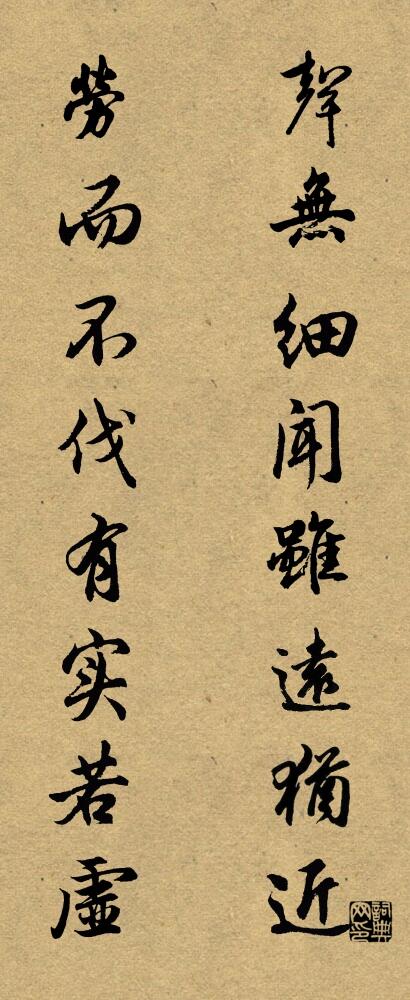 聲無細聞雖遠猶近
勞而不伐有实若虛
詞典网印